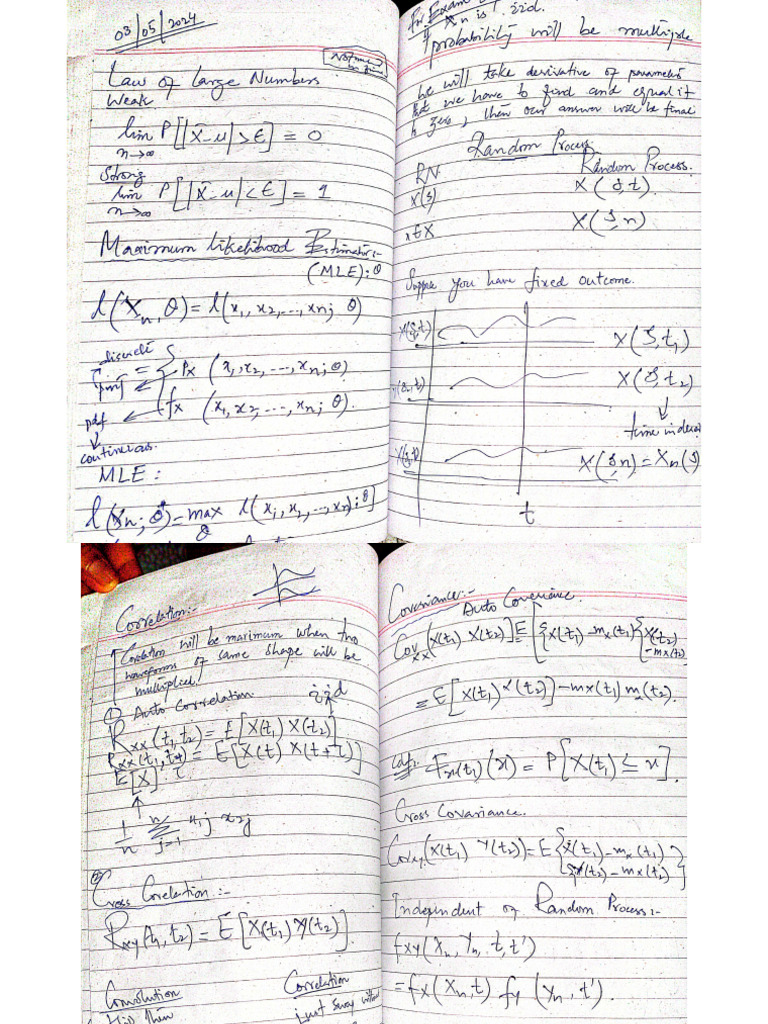 03/05/2024
Law of Large Numbers
Weak
lim P[|X̄-u|>ε] = 0
n→∞
Strong
lim P[|X̄-u|<ε] = 1
n→∞
Maximum likelihood Estimator:-
(MLE): θ
l(Xn, θ) = l(x1, x2, ..., xn; θ)
discrete
pmf
= { Px (x1, x2, ..., xn; θ)
fx (x1, x2, ..., xn; θ).
pdf
continuous.
MLE:
l(Xn; θ*) = max l(x1, x2, ..., xn; θ]
θ
For Exam
if Xn is iid.
probability will be multiple
we will take derivative of parameter
that we have to find and equal it
to zero, then our answer will be final
Random Process
RN Random Process.
X(ζ) X(ζ, t)
X(ζ, n)
Suppose you have fixed outcome.
X(ζ, t) X(ζ, t1)
X(ζ, t2)
time index
X(ζ, n) = Xn(ζ)
t
Correlation:-
Correlation will be maximum when two
waveforms of same shape will be
multiplied.
① Auto Correlation
iid
Rxx(t1, t2) = E[X(t1) X(t2)]
= E[X(t) X(t+τ)]
E[X]
1/n Σ x1j x2j
n
j=1
② Cross Correlation:-
Rxy(t1, t2) = E[X(t1) Y(t2)].
Convolution Correlation
just sway without
Covariance:- Auto Coverience
Covxx(X(t1) X(t2)) = E[{X(t1) - mx(t1)}{X(t2)
- mx(t2)
= E[X(t1) X(t2)] - mx(t1) mx(t2).
cdf:- Fx(t1)(x) = P[X(t1) ≤ x].
Cross Covariance.
Covxy(X(t1) Y(t2)) = E{X(t1) - mx(t1)}
{Y(t2) - mx(t2)}
Independent of Random Process:-
fxy(Xn, Yn, t, t')
= fx(Xn, t) fy(Yn, t').